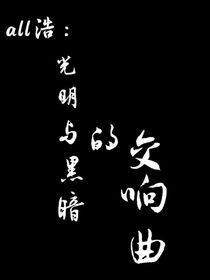 all浩：
光明与黑暗
的
交响曲